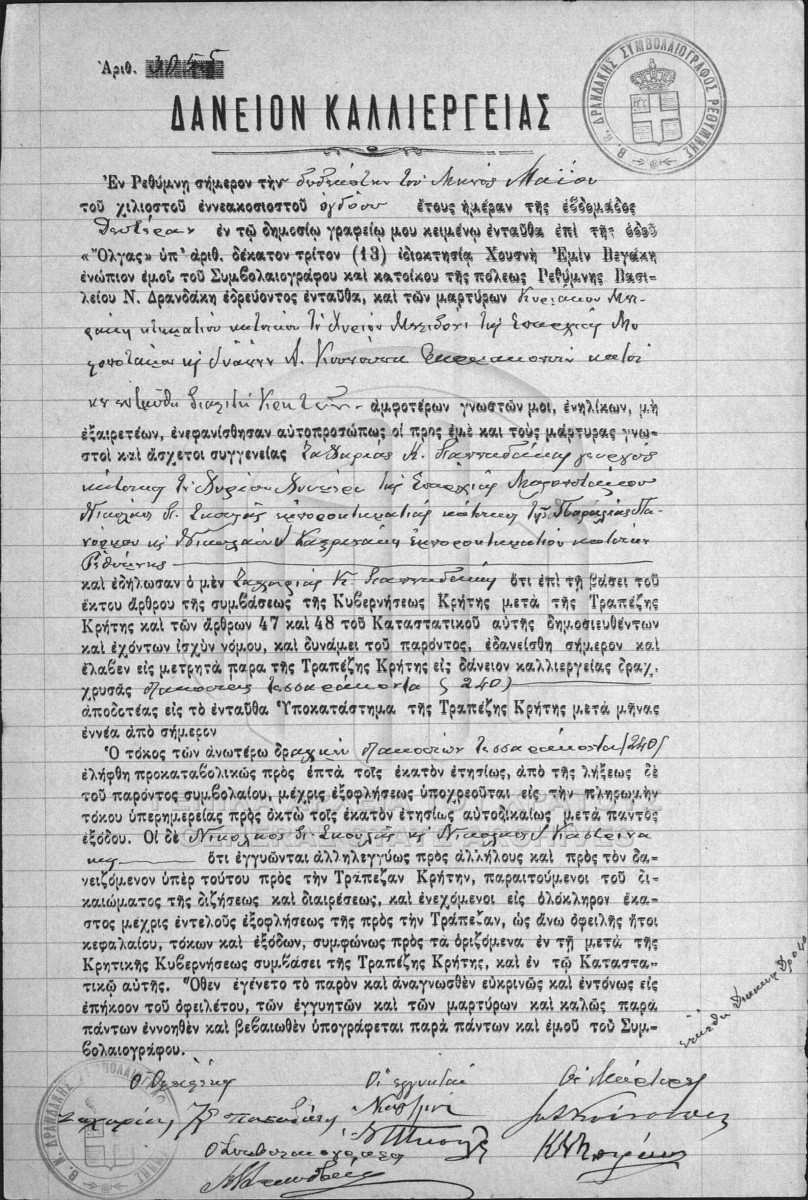 Ἀριθ. 3055
Β. Ν. ΔΡΑΝΔΑΚΗΣ ΣΥΜΒΟΛΑΙΟΓΡΑΦΟΣ ΡΕΘΥΜΝΗΣ
ΔΑΝΕΙΟΝ ΚΑΛΛΙΕΡΓΕΙΑΣ
Ἐν Ρεθύμνῃ σήμερον τὴν δωδεκάτην τοῦ Μηνὸς Μαΐου
τοῦ χιλιοστοῦ ἐννεακοσιοστοῦ ὀγδόου ἔτους ἡμέραν τῆς ἑβδομάδος
Δευτέραν ἐν τῷ δημοσίῳ γραφείῳ μου κειμένῳ ἐνταῦθα ἐπὶ τῆς ὁδοῦ
«Ὄλγας» ὑπ' ἀριθ. δέκατον τρίτον (13) ἰδιοκτησίᾳ Χουσνῆ Ἐμὶν Βεγάκη
ἐνώπιον ἐμοῦ τοῦ Συμβολαιογράφου καὶ κατοίκου τῆς πόλεως Ρεθύμνης Βασι-
λείου Ν. Δρανδάκη ἑδρεύοντος ἐνταῦθα, καὶ τῶν μαρτύρων Κυριάκου
κτηματίου κατοίκου τοῦ χωρίου τῆς Ἐπαρχίας Μυ-
λοποτάμου κς Ἰωάννου Α.
ἀμφοτέρων γνωστῶν μοι, ἐνηλίκων, μὴ
ἐξαιρετέων, ἐνεφανίσθησαν αὐτοπροσώπως οἱ πρὸς ἐμὲ καὶ τοὺς μάρτυρας γνω-
στοὶ καὶ ἄσχετοι συγγενείας Ζαχαρίας Κ. Παπαδάκης γεωργὸς
κάτοικος τοῦ χωρίου τῆς Ἐπαρχίας Μυλοποτάμου
Νικόλαος Σκουλᾶς κάτοικος τῆς
κς Νικόλαος Καστρινάκης
Ρεθύμνης
καὶ ἐδήλωσαν ὁ μὲν Ζαχαρίας Κ. Παπαδάκης ὅτι ἐπὶ τῇ βάσει τοῦ
ἕκτου ἄρθρου τῆς συμβάσεως τῆς Κυβερνήσεως Κρήτης μετὰ τῆς Τραπέζης
Κρήτης καὶ τῶν ἄρθρων 47 καὶ 48 τοῦ Καταστατικοῦ αὐτῆς δημοσιευθέντων
καὶ ἐχόντων ἰσχὺν νόμου, καὶ δυνάμει τοῦ παρόντος, ἐδανείσθη σήμερον καὶ
ἔλαβεν εἰς μετρητὰ παρὰ τῆς Τραπέζης Κρήτης εἰς δάνειον καλλιεργείας δραχ.
χρυσᾶς διακοσίας τεσσαράκοντα (240)
ἀποδοτέας εἰς τὸ ἐνταῦθα Ὑποκατάστημα τῆς Τραπέζης Κρήτης μετὰ μῆνας
ἐννέα ἀπὸ σήμερον
Ὁ τόκος τῶν ἀνωτέρω δραχμῶν διακοσίων τεσσαράκοντα (240)
ἐλήφθη προκαταβολικῶς πρὸς ἑπτὰ τοῖς ἑκατὸν ἐτησίως, ἀπὸ τῆς λήξεως δὲ
τοῦ παρόντος συμβολαίου, μέχρις ἐξοφλήσεως ὑποχρεοῦται εἰς τὴν πληρωμὴν
τόκου ὑπερημερίας πρὸς ὀκτὼ τοῖς ἑκατὸν ἐτησίως αὐτοδικαίως μετὰ παντὸς
ἐξόδου. Οἱ δὲ Νικόλαος Σκουλᾶς κς Νικόλαος Καστρινά
κης ὅτι ἐγγυῶνται ἀλληλεγγύως πρὸς ἀλλήλους καὶ πρὸς τὸν δα-
νειζόμενον ὑπὲρ τούτου πρὸς τὴν Τράπεζαν Κρήτην, παραιτούμενοι τοῦ δι-
καιώματος τῆς διζήσεως καὶ διαιρέσεως, καὶ ἐνεχόμενοι εἰς ὁλόκληρον ἕκα-
στος μέχρις ἐντελοῦς ἐξοφλήσεως τῆς πρὸς τὴν Τράπεζαν, ὡς ἄνω ὀφειλῆς ἤτοι
κεφαλαίου, τόκων καὶ ἐξόδων, συμφώνως πρὸς τὰ ὁριζόμενα ἐν τῇ μετὰ τῆς
Κρητικῆς Κυβερνήσεως συμβάσει τῆς Τραπέζης Κρήτης, καὶ ἐν τῷ Καταστα-
τικῷ αὐτῆς. Ὅθεν ἐγένετο τὸ παρὸν καὶ ἀναγνωσθὲν εὐκρινῶς καὶ ἐντόνως εἰς
ἐπήκοον τοῦ ὀφειλέτου, τῶν ἐγγυητῶν καὶ τῶν μαρτύρων καὶ καλῶς παρὰ
πάντων ἐννοηθὲν καὶ βεβαιωθὲν ὑπογράφεται παρὰ πάντων καὶ ἐμοῦ τοῦ Συμ-
βολαιογράφου.
Ὁ Ὀφειλέτης Οἱ ἐγγυηταί Οἱ Μάρτυρες
Ζαχαρίας Κ Παπαδάκης
Ὁ Συμβολαιογράφος
Β. Ν. ΔΡΑΝΔΑΚΗΣ ΣΥΜΒΟΛΑΙΟΓΡΑΦΟΣ ΡΕΘΥΜΝΗΣ